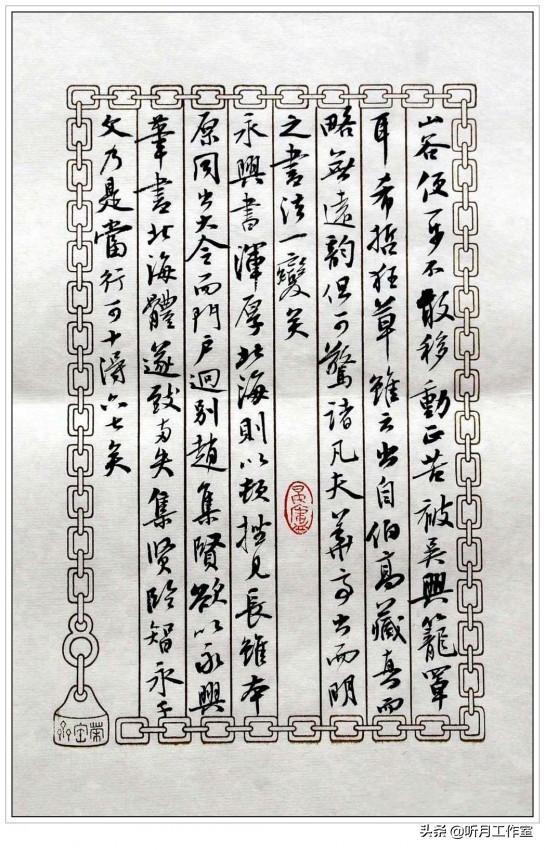 山谷便不敢移動正苦被吳興籠罩
耳希哲狂草雖云出自伯高藏真而
略無遠韻但可驚諸凡夫華亭出而明
之書法一變矣
永興書渾厚北海則以頓挫見長雖本
原同出大令而門戶迥別趙集賢欲以永興
筆書北海體遂致兩失集賢臨智永千
文乃是當行可十得六七矣
榮寶齋
头条 @听月工作室